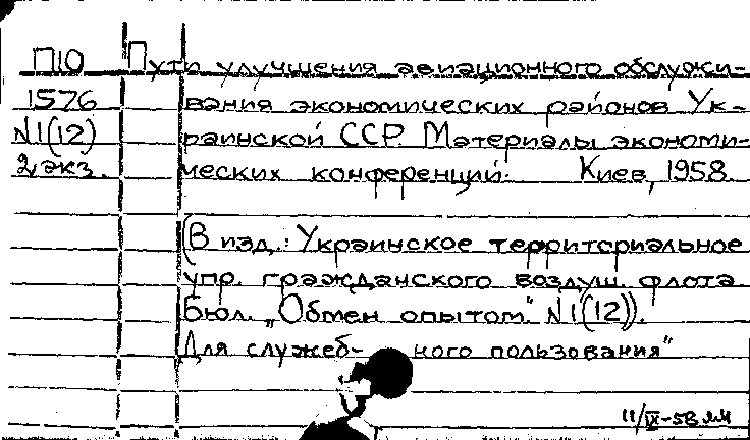 П10 Пути улучшения авиационного обслужи-
1576 вания экономических районов Ук-
N1(12) раинской ССР. Материалы экономи-
2 экз. ческих конференций. Киев, 1958.
(В изд.: Украинское территориальное
упр. гражданского воздуш. флота.
Бюл. „Обмен опытом" N1(12)).
Для служеб- ного пользования"
11/IX-58